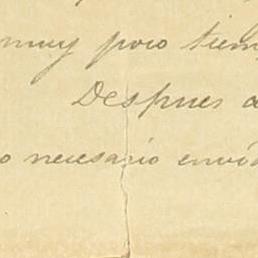 muy poco tiem
Despues d
o necesario envi